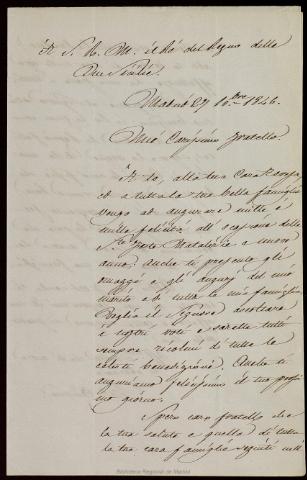 A S. R. M. il Ré del Regno delle
Due Sicilie.
Madrid 27 10.bre 1846.
Mio Carissimo Fratello.
A te, alla tua Cara Sposa,
ed a tutta la tua bella famiglia
vengo ad augurare mille e
mille felicità all' occasione delle
S.te Feste Natalizie e nuovo
anno: Anche ti presento gli
omaggi e gli auguri del mio
marito e di tutta la mia famiglia
Voglia il Signore ascoltare
i nostri voti e sarete tutti
sempre ricolmi di tutte le
celesti benedizioni. Anche ti
auguriamo felicissimo il tuo prossi
mo giorno.
Spero caro fratello che
la tua salute e quella di tutta
la tua cara famiglia seguiti nell'
Biblioteca Regional de Madrid